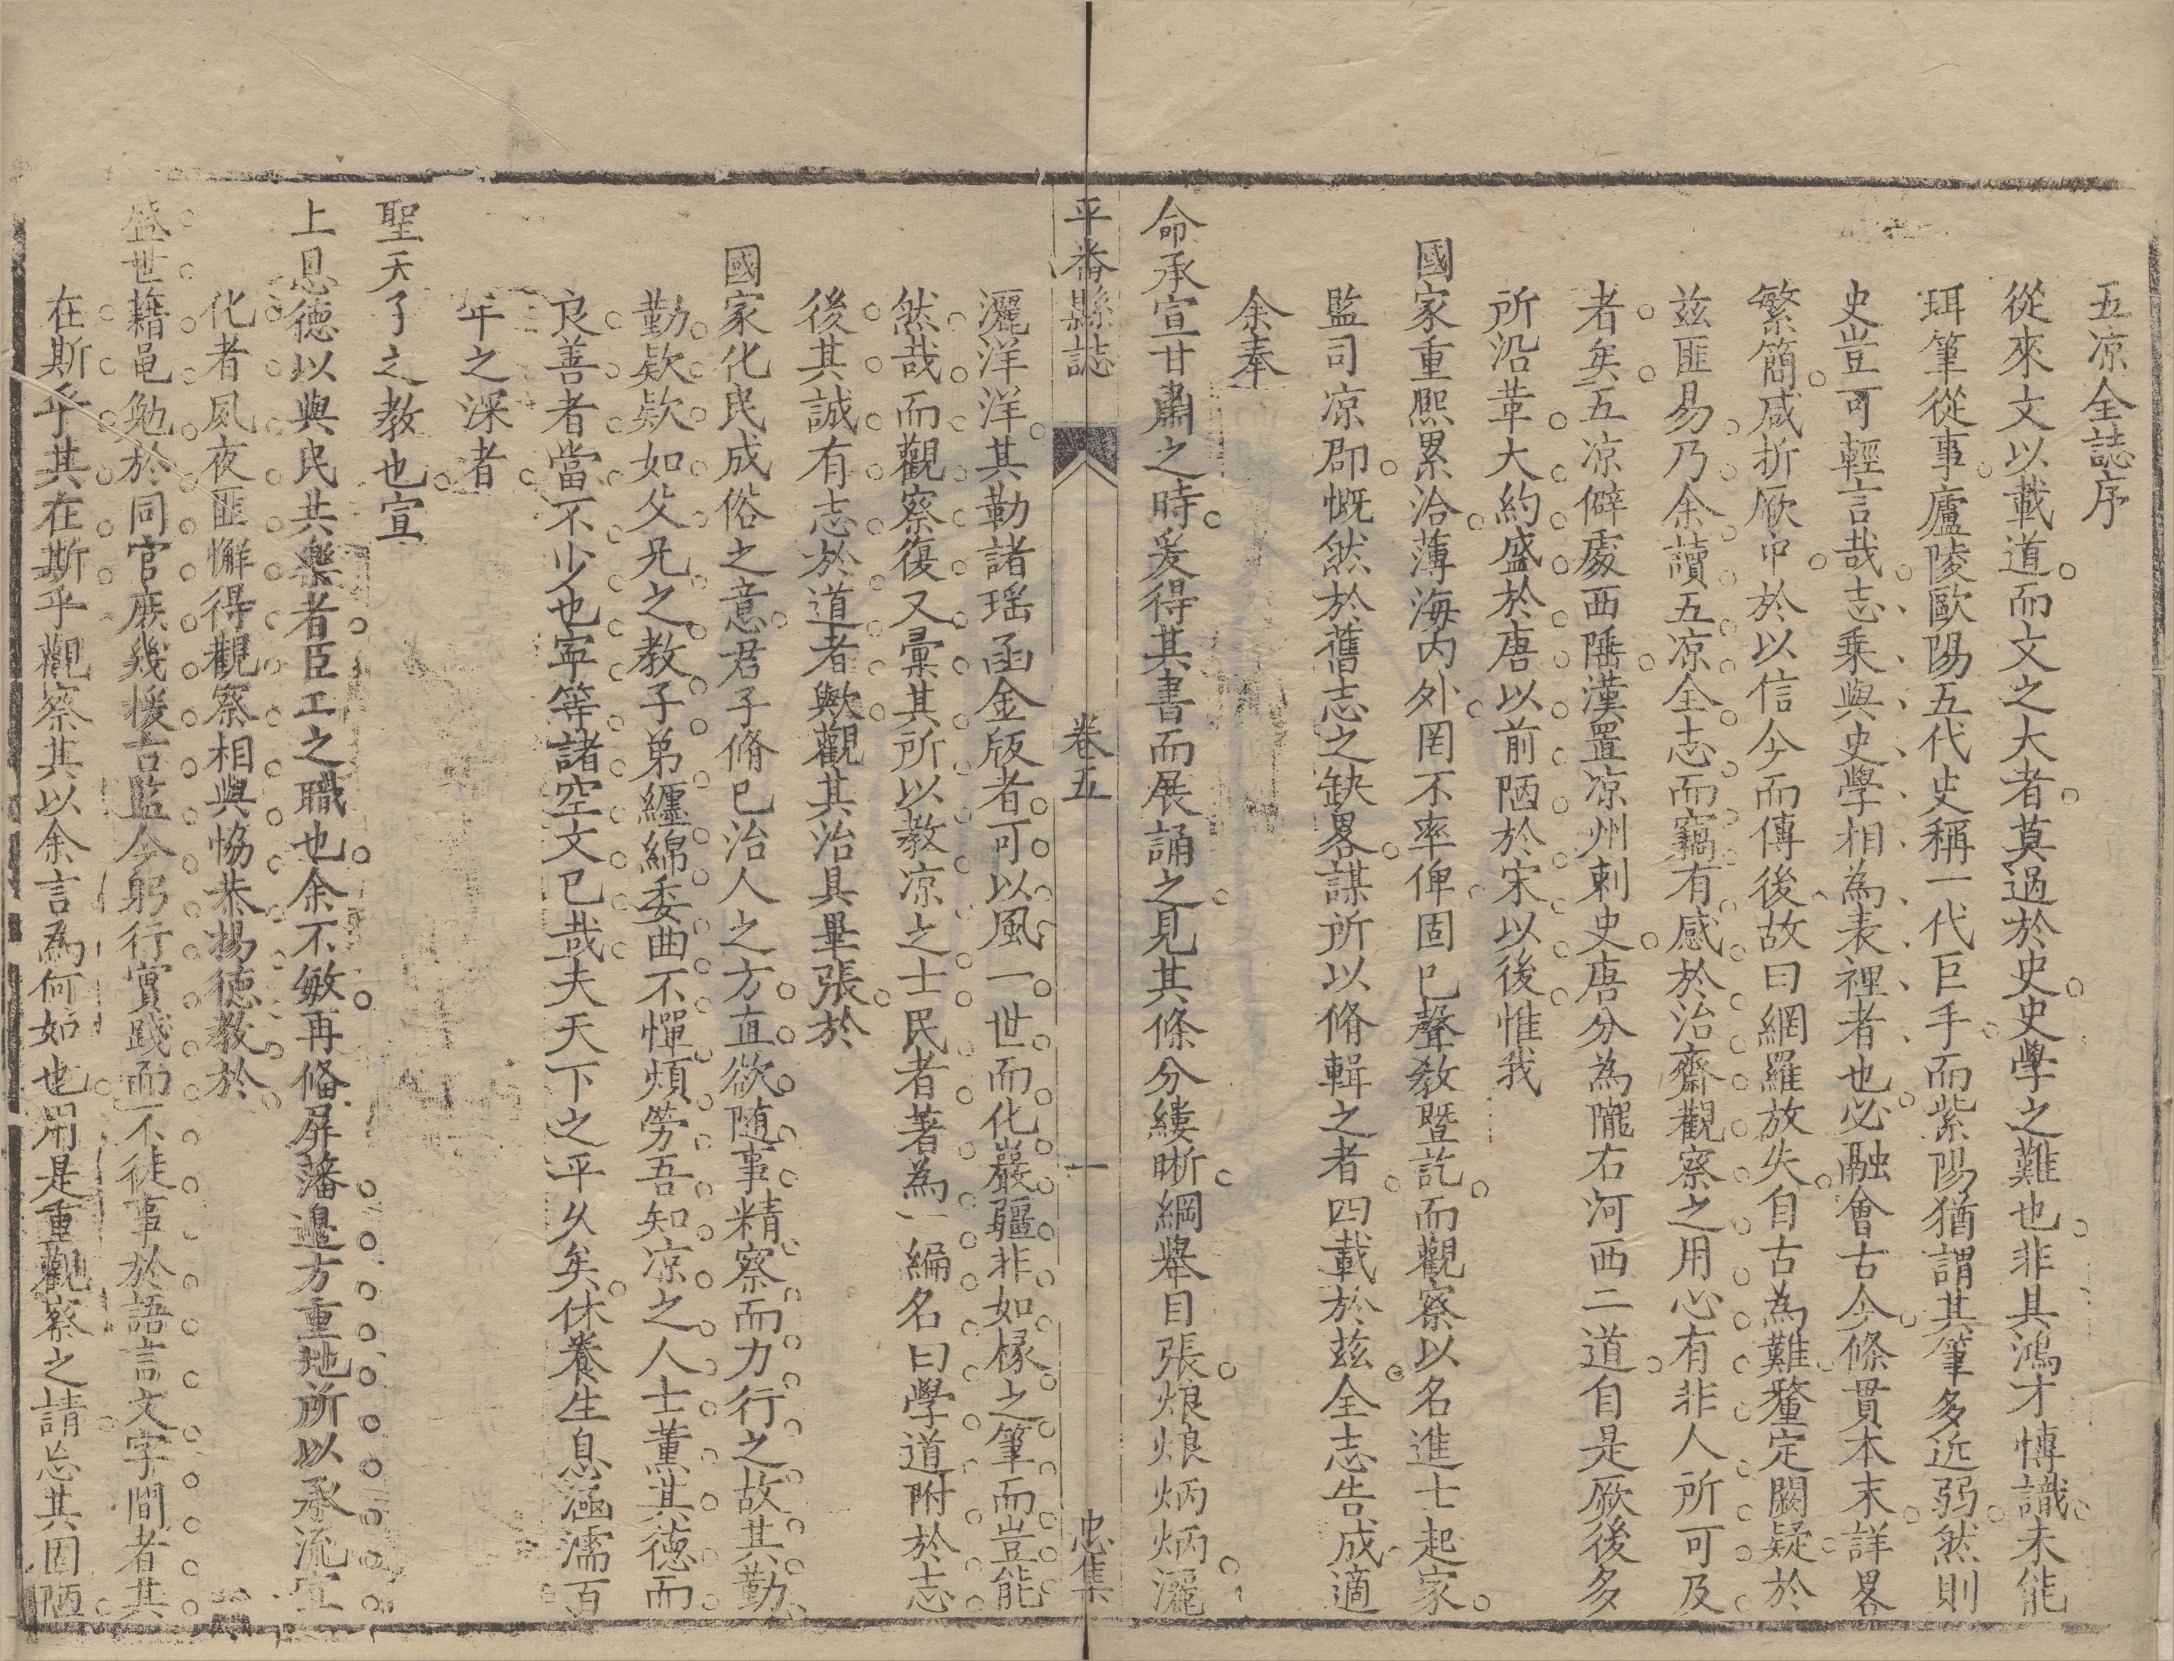 五凉全誌序
從來文以載道而文之大者莫過於史史學之難也非具鴻才博識未能
珥筆從事廬陵歐陽五代史稱一代巨手而紫陽猶謂其筆多近弱然則
史豈可輕言哉志乗與史學相為表裡者也必融會古今條貫本末詳畧
繁簡咸折厥中於以信今而傳後故曰網羅放失自古為難釐定闕疑於
兹匪易乃余讀五凉全志而竊有感於治齋觀察之用心有非人所可及
者矣五凉僻處西陲漢置凉州刺史唐分為隴右河西二道自是厥後多
所沿革大約盛於唐以前陋於宋以後惟我
國家重熙累洽薄海内外罔不率俾固巳聲教暨訖而觀察以名進士起家
監司凉郡慨然於舊志之缺畧謀所以脩輯之者四載於兹全志告成適
余奉
命承宣甘肅之時爰得其書而展誦之見其條分縷晰綱舉目張烺烺炳炳灑
平番縣誌 卷五 一 忠集
灑洋洋其勒諸瑶函金版者可以風一世而化巖疆非如椽之筆而豈能
然哉而觀察復又彚其所以教凉之士民者著為一編名曰學道附於志
後其誠有志於道者歟觀其治具畢張於
國家化民成俗之意君子脩巳治人之方直欲随事精察而力行之故其勤
勤欵欵如父兄之教子弟纏綿委曲不憚煩勞吾知凉之人士薫其德而
良善者當不少也寜等諸空文巳哉夫天下之平久矣休養生息涵濡百
年之深者
聖天子之教也宣
上恩德以與民共樂者臣工之職也余不敏再偹屏藩邉方重地所以承流宣
化者夙夜匪懈得觀察相與恊恭揚德教於
盛世藉黽勉於同官庶幾援古監今躬行實踐而不徒事於語言文字間者其
在斯乎其在斯乎觀察其以余言為何如也用是重觀察之請忘其固陋